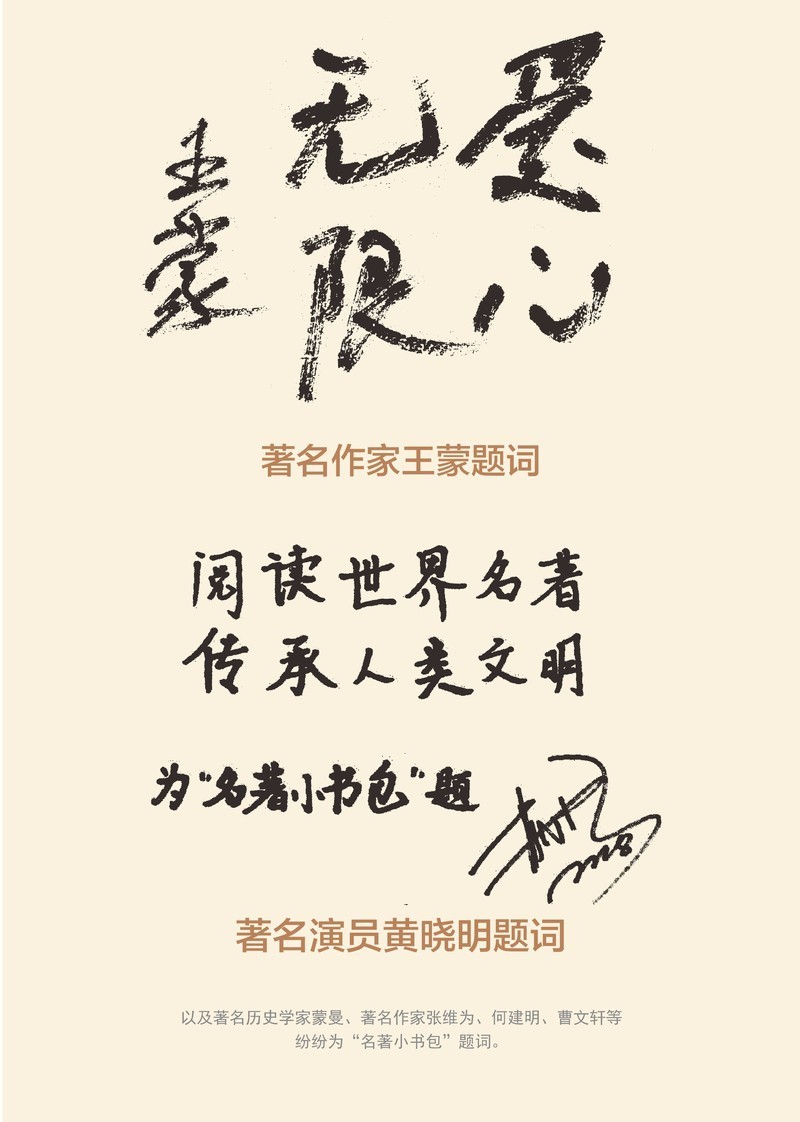 爱心
无限
王蒙
著名作家王蒙题词
阅读世界名著
传承人类文明
为“名著小书包”题
著名演员黄晓明题词
以及著名历史学家蒙曼、著名作家张维为、何建明、曹文轩等
纷纷为“名著小书包”题词。